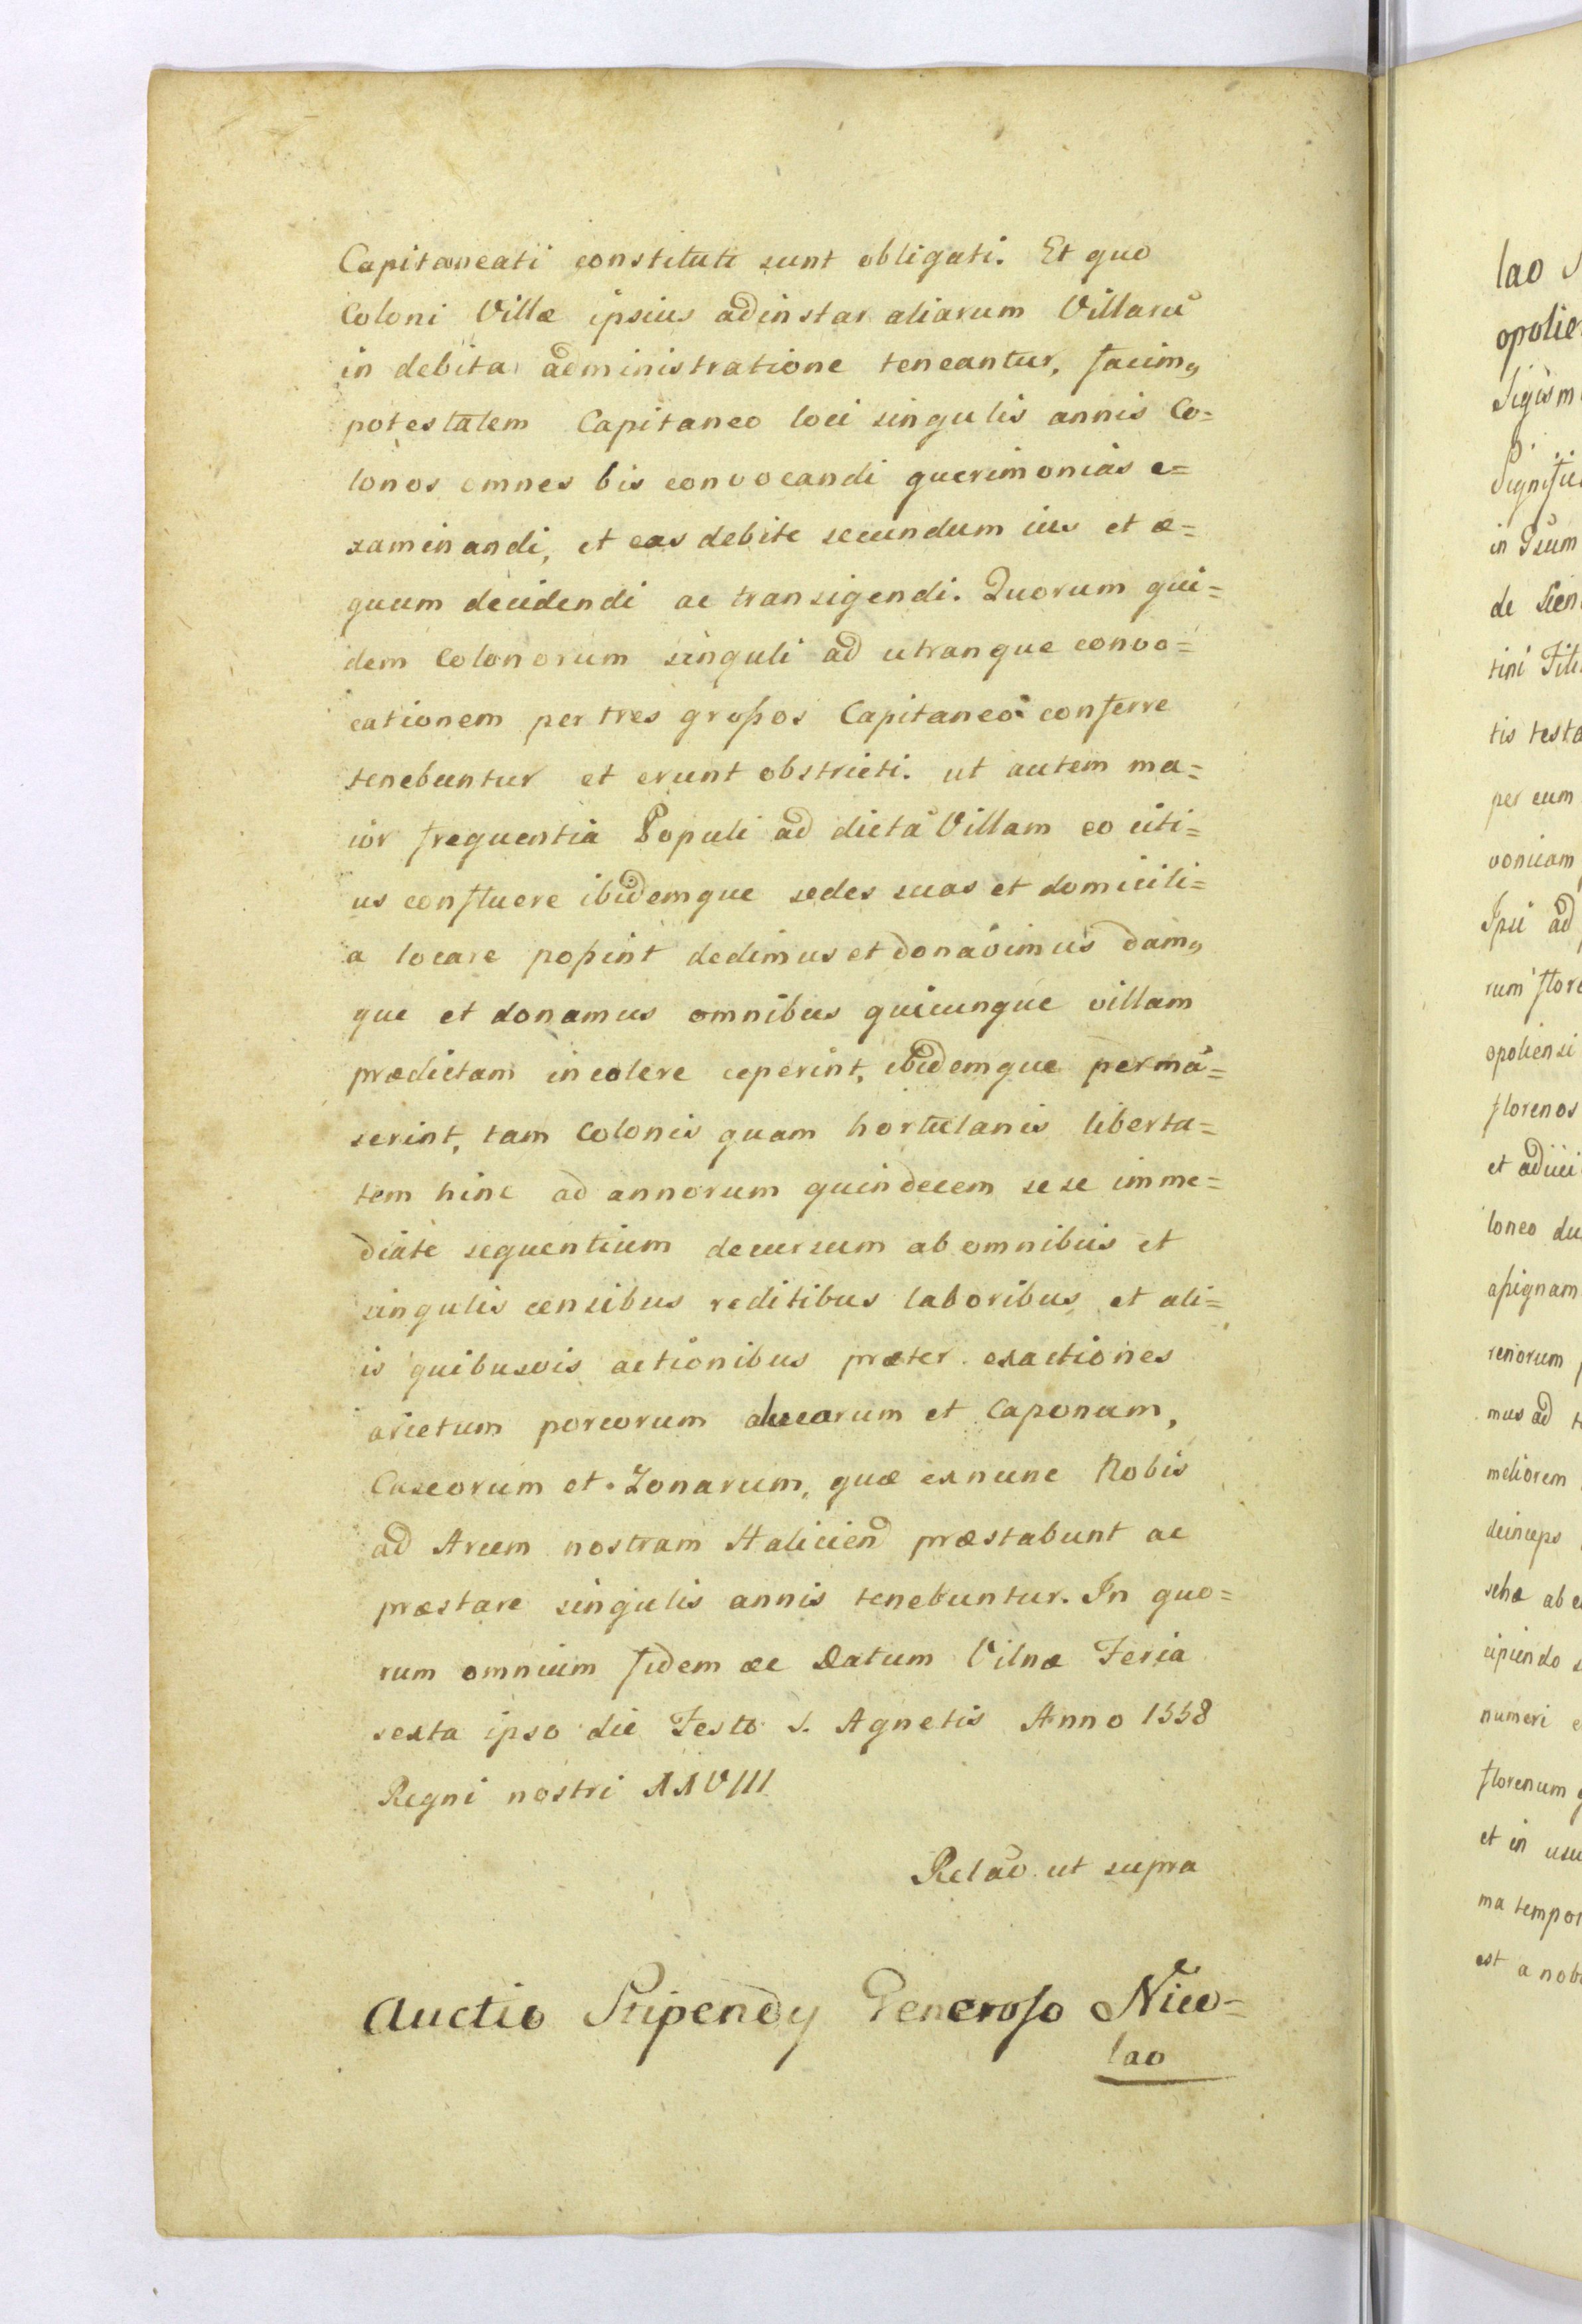 Capitaneati constituti sunt obligati. Et quo
Coloni Villæ ipsius ad instar aliarum Villarū
in debita administratione teneantur, facim9
potestatem Capitaneo loci singulis annis Co=
lonos omnes bis convocandi querimonias e=
xaminandi, et eas debite secundum ius et æ=
quum decidendi ac transigendi. Quorum qui=
dem Colonorum singuli ad utranque convo=
cationem per tres großos Capitaneo conferre
tenebuntur et erunt obstricti. ut autem ma=
ior frequentia Populi ad dictā Villam eo citi=
us confluere ibidemque sedes suas et domicili=
a locare poßint dedimus et donavimus dam9
que et donamus omnibus quicunque villam
prædictam incolere ceperint, ibidemque permā=
serint, tam Colonis quam hortulanis liberta=
tem hinc ad annorum quindecem sese imme=
diate sequentium decursum ab omnibus et
singulis censibus reditibus laboribus et ali=
is quibusvis actionibus præter exactiones
arietum porcorum aucarum et Caponum,
Caseorum et Zonarum, quæ ex nunc Nobis
ad Arcem nostram Haliciend præstabunt ac
præstare singulis annis tenebuntur. In quo=
rum omnium fidem ac Datum Vilnæ Feria
sexta ipso die Festo S. Agnetis Anno 1558
Regni nostri XXVIII
Relaō ut supra
Auctio Stipendy Generoso Nico=
lao
lao
opolie
Sigism
Signific
in
de Sien
tini Fili
tis testa
per eum
vonicam
Ipsi ad
rum flore
opoliensi
florenos
et adiici
loneo du
aßignam
renorum
mus ad
meliorem
deinceps
ab
cipiendo
numeri
florenum
et in usu
ma tempor
est a nob